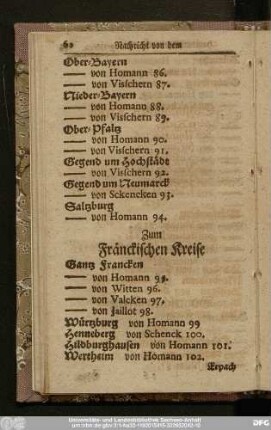 60 Nachricht von dem
Ober-Bayern
—— von Homann 86.
—— von Visschern 87.
Nieder-Bayern
—— von Homann 88.
—— von Visschern 89.
Ober-Pfaltz
—— von Homann 90.
—— von Visschern 91.
Gegend um Hochstädt
—— von Visschern 92.
Gegend um Neumarck
—— von Sckencken 93.
Saltzburg
—— von Homann 94.
Zum
Fränckischen Kreise
Gantz Francken
—— von Homann 95.
—— von Witten 96.
—— von Valcken 97.
—— von Jaillot 98.
Würtzburg von Homann 99
Henneberg von Schenck 100.
Hildburghausen von Homann 101.
Wertheim von Homann 102.
Erpach
Universitäts- und Landesbibliothek Sachsen-Anhalt